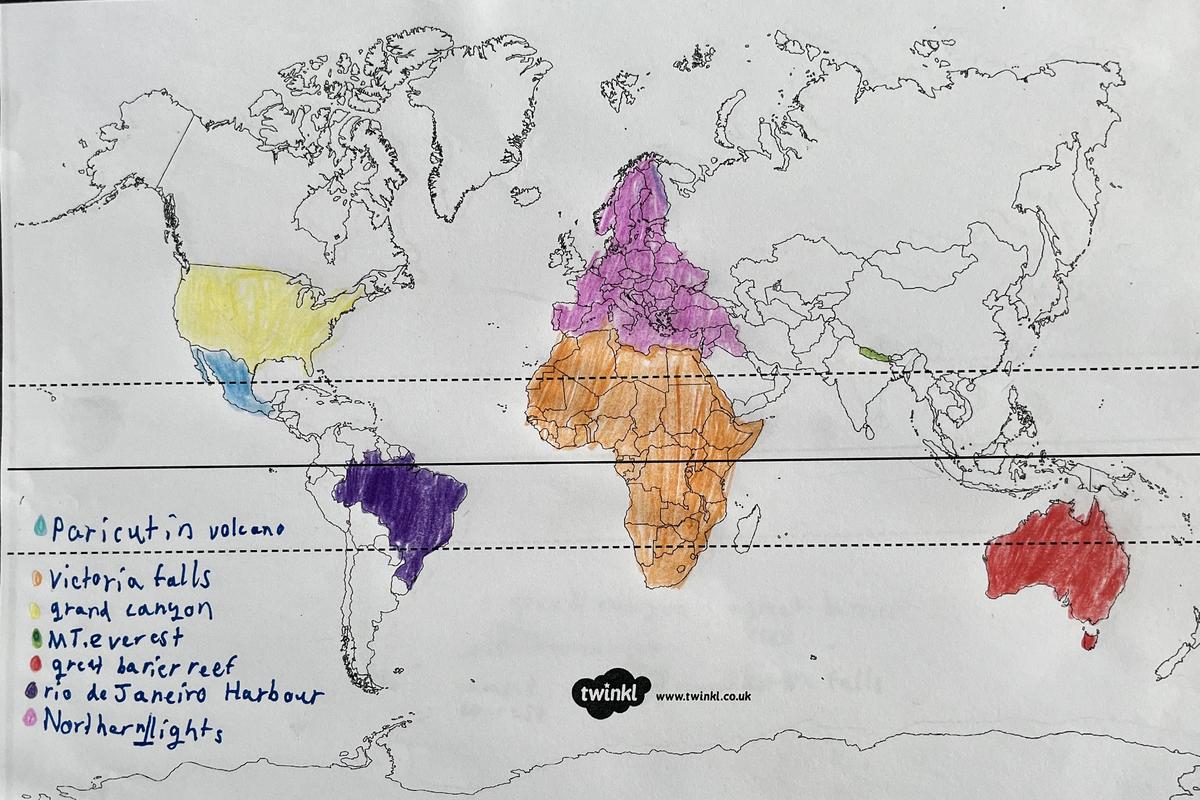 Paricutin volcano
Victoria falls
grand canyon
MT.everest
great barier reef
rio de Janeiro Harbour
Northern lights
twinkl www.twinkl.co.uk